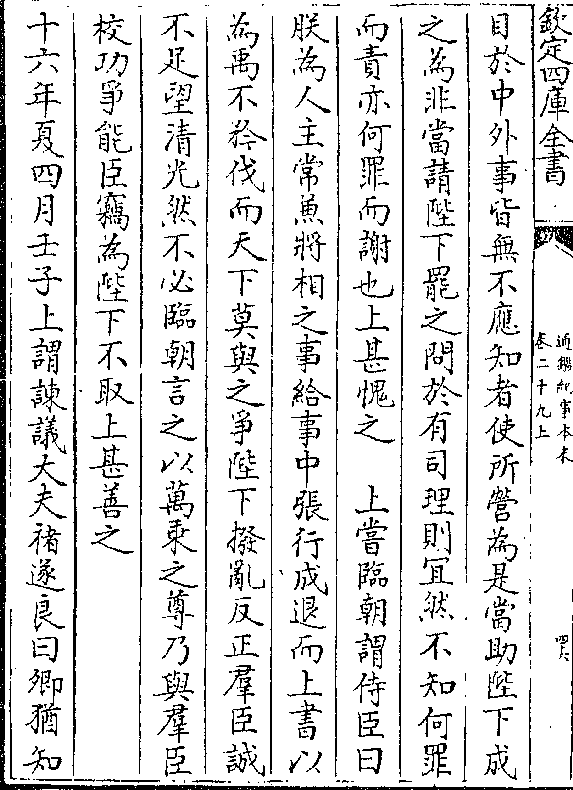 欽定四庫全書
通鑑紀事本末
卷二十九上
四六
目於中外事皆無不應知者使所營為是當助陛下成
之為非當請陛下罷之問於有司理則宜然不知何罪
而責亦何罪而謝也上甚愧之　上嘗臨朝謂侍臣曰
朕為人主常兼將相之事給事中張行成退而上書以
為禹不矜伐而天下莫與之爭陛下撥亂反正羣臣誠
不足望清光然不必臨朝言之以萬乘之尊乃與羣臣
校功爭能臣竊為陛下不取上甚善之
十六年夏四月壬子上謂諫議大夫褚遂良曰卿猶知